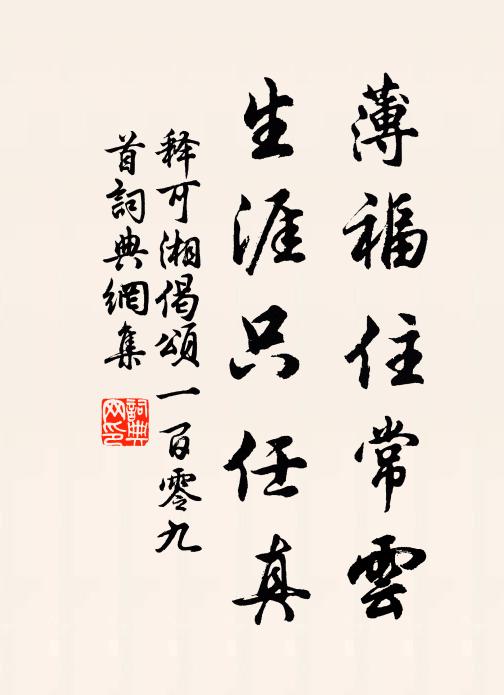 薄福住常雲
生涯只任真
释可湘偈頌一百零九
首詞典網集
詞典
网印